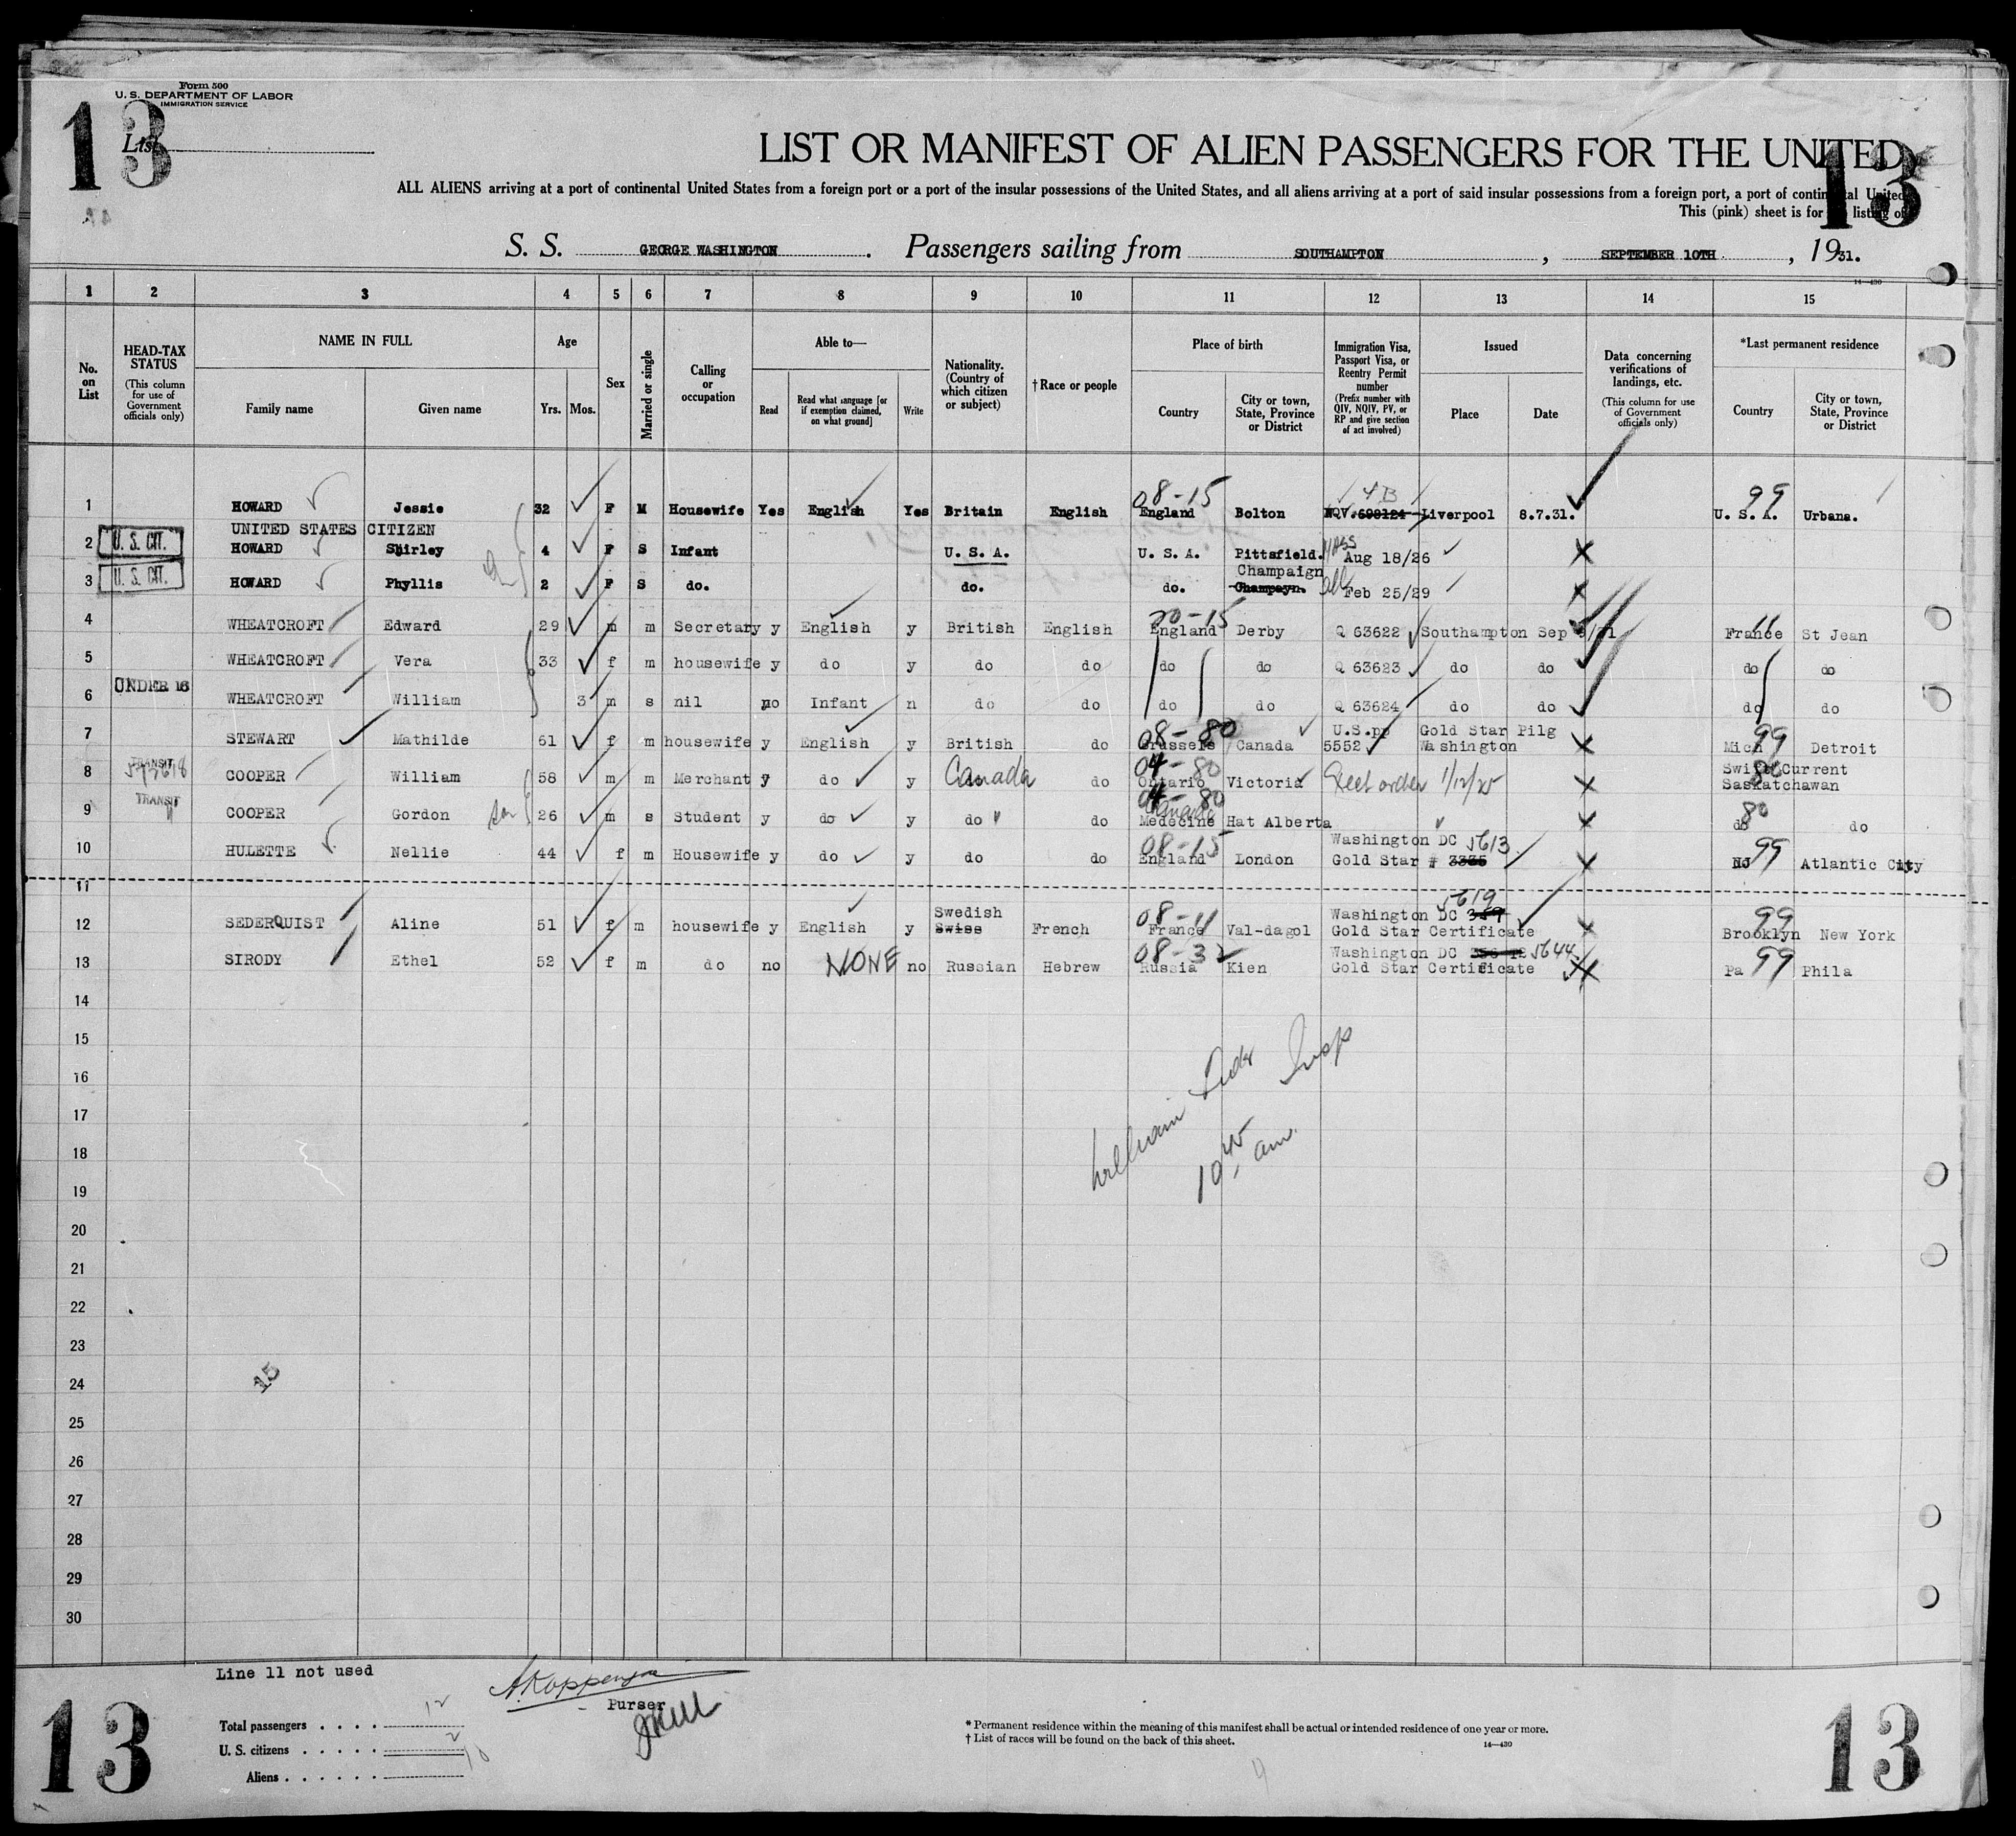 Form 500
U. S. DEPARTMENT OF LABOR
IMMIGRATION SERVICE
13
List
LIST OR MANIFEST OF ALIEN PASSENGERS FOR THE UNITED
13
ALL ALIENS arriving at a port of continental United States from a foreign port or a port of the insular possessions of the United States, and all aliens arriving at a port of said insular possessions from a foreign port, a port of continental United
This (pink) sheet is for the listing of
S. S. GEORGE WASHINGTON . Passengers sailing from SOUTHAMPTON , SEPTEMBER 10TH , 1931.
14-430
1 2 3 4 5 6 7 8 9 10 11 12 13 14 15
No. on List
HEAD-TAX STATUS (This column for use of Government officials only)
NAME IN FULL
Family name Given name
Age
Yrs. Mos.
Sex
Married or single
Calling or occupation
Able to—
Read Read what language [or if exemption claimed, on what ground] Write
Nationality. (Country of which citizen or subject)
†Race or people
Place of birth
Country City or town, State, Province or District
Immigration Visa, Passport Visa, or Reentry Permit number (Prefix number with QIV, NQIV, PV, or RP and give section of act involved)
Issued
Place Date
Data concerning verifications of landings, etc. (This column for use of Government officials only)
*Last permanent residence
Country City or town, State, Province or District
08-15 4B 99
1 HOWARD Jessie 32 F M Housewife Yes English Yes Britain English England Bolton NQV.698124 Liverpool 8.7.31. U. S. A. Urbana.
UNITED STATES CITIZEN
2 U. S. CIT. HOWARD Shirley 4 F S Infant U. S. A. U. S. A. Pittsfield. Mass Aug 18/26
Champaign
3 U. S. CIT. HOWARD Phyllis 2 F S do. do. do. Champayn. Ill Feb 25/29
20-15 11
4 WHEATCROFT Edward 29 m m Secretary y English y British English England Derby Q 63622 Southampton Sep /31 France St Jean
5 WHEATCROFT Vera 33 f m housewife y do y do do do do Q 63623 do do do do
6 UNDER 16 WHEATCROFT William 3 m s nil no Infant n do do do do Q 63624 do do do do
08-80 U.S.pp Gold Star Pilg 99
7 STEWART Mathilde 61 f m housewife y English y British do Brussels Canada 5552 Washington Mich Detroit
TRANSIT 04-80 Swift Current 80
8 COOPER William 58 m m Merchant y do y Canada do Ontario Victoria 1/12/25 Saskatchawan
TRANSIT 04-80 Canada 80
9 COOPER Gordon Son 26 m s Student y do y do do Medecine Hat Alberta do do
08-15 Washington DC 5613 99
10 HULETTE Nellie 44 f m Housewife y do y do do England London Gold Star # 3335 NJ Atlantic City
11
Swedish 08-11 Washington DC 349 5619 99
12 SEDERQUIST Aline 51 f m housewife y English y Swiss French France Val-dagol Gold Star Certificate Brooklyn New York
08-32 Washington DC 5644 99
13 SIRODY Ethel 52 f m do no NONE no Russian Hebrew Russia Kien Gold Star Certificate Pa Phila
14
15
16
17
18
19
20
21
22
23
24
25
26
27
28
29
30
William Insp
10 45 am.
15
Line 11 not used
Purser
13
Total passengers . . . . 12
U. S. citizens . . . . . 2
Aliens . . . . . . 10
* Permanent residence within the meaning of this manifest shall be actual or intended residence of one year or more.
† List of races will be found on the back of this sheet.
14—430
13